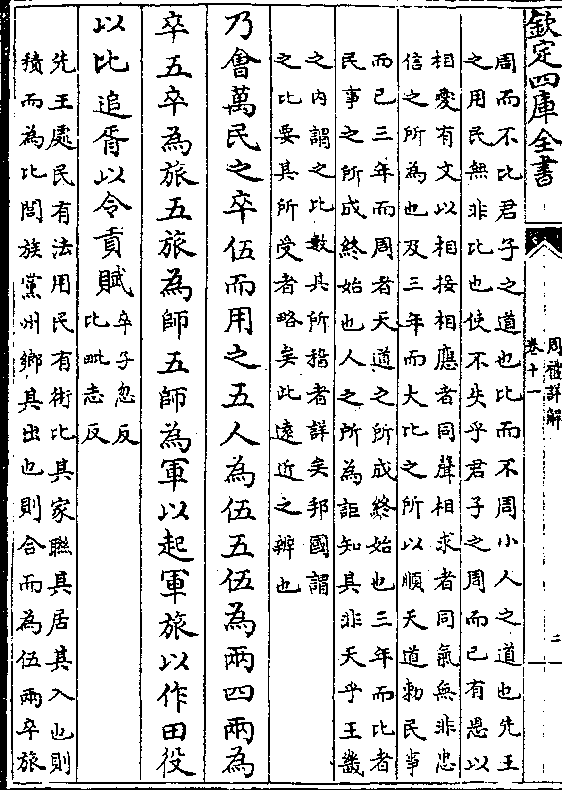 欽定四庫全書
周禮詳解
卷十一
二
周而不比君子之道也比而不周小人之道也先王
之用民無非比也使不失乎君子之周而已有恩以
相愛有文以相接相應者同聲相求者同氣無非忠
信之所為也及三年而大比之所以順天道勅民事
而已三年而周者天道之所成終始也三年而比者
民事之所成終始也人之所為詎知其非天乎王畿
之内謂之比數其所稽者詳矣邦國謂
之比要其所受者略矣此遠近之辨也
乃會萬民之卒伍而用之五人為伍五伍為兩四兩為
卒五卒為旅五旅為師五師為軍以起軍旅以作田役
以比追胥以令貢賦
卒子忽反
比毗志反
先王處民有法用民有術比其家聯其居其入也則
積而為比閭族黨州鄉其出也則合而為伍兩卒旅